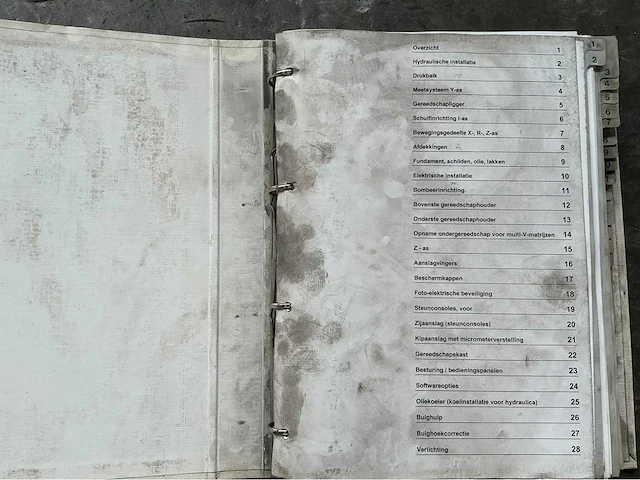 Overzicht 1
Hydraulische installatie 2
Drukbalk 3
Meetsysteem Y-as 4
Gereedschapligger 5
Schuifinrichting I-as 6
Bewegingsgedeelte X-, R-, Z-as 7
Afdekkingen 8
Fundament, schilden, olie, lakken 9
Elektrische installatie 10
Bombeerinrichting 11
Bovenste gereedschaphouder 12
Onderste gereedschaphouder 13
Opname ondergereedschap voor multi-V-matrijzen 14
Z - as 15
Aanslagvingers 16
Beschermkappen 17
Foto-elektrische beveiliging 18
Steunconsoles, voor 19
Zijaanslag (steunconsoles) 20
Klpaanslag met micrometerverstelling 21
Gereedschapskast 22
Besturing / bedieningspanelen 23
Softwareopties 24
Oliekoeler (koelinstallatie voor hydraulica) 25
Buighulp 26
Buighoekcorrectie 27
Verlichting 28
1
2
3
4
5
6
7